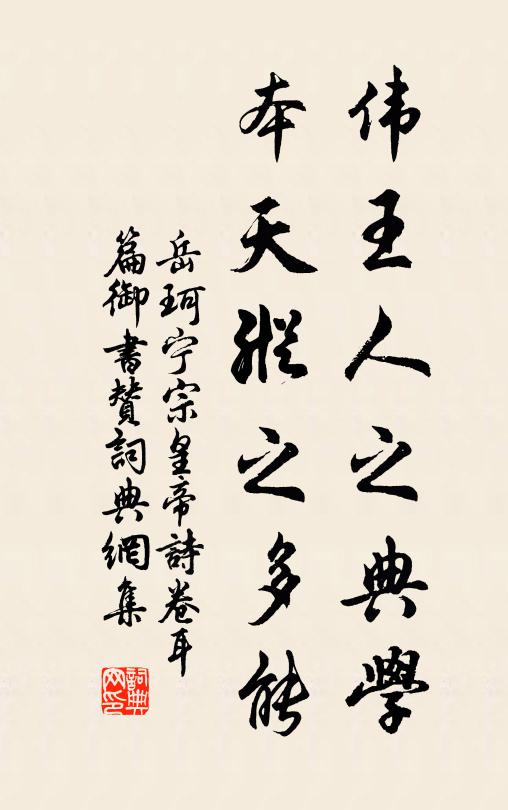 伟王人之典學
本天縱之多能
岳珂宁宗皇帝詩卷耳
篇御書贊詞典網集
詞典
网印